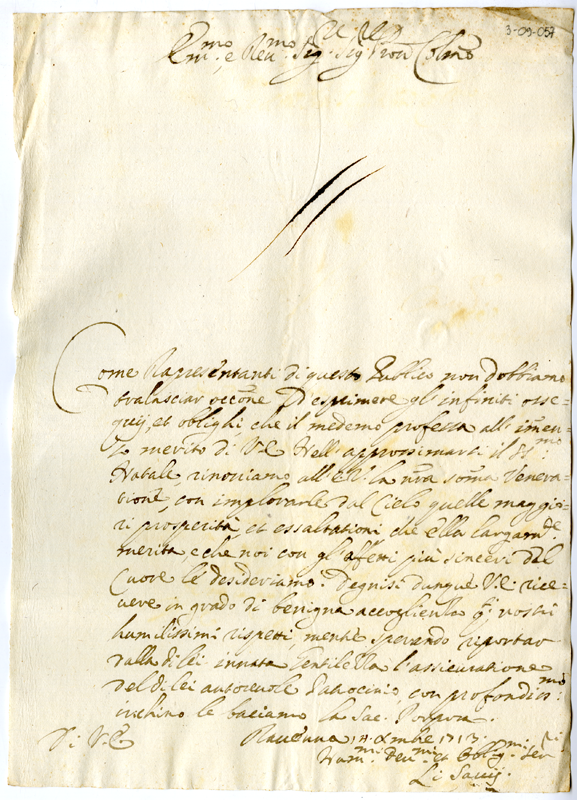 3-09-057
Em.mo e Reu.mo Sig. Sig. Pron Colmo
Come Rapresentanti di questo Publico non dobbiamo
tralasciar occne. d'esprimere gl'infiniti osse-
quij, et oblighi che il medemo professa all'immen-
so merito di V.E. Nell'approssimarsi il SS.mo
Natale rinoviamo all'E.V. la nra. soma Venera-
tione, con implorarle dal Cielo quelle maggio-
ri prosperità, et essaltationi che ella largam.te
merita, e che noi con gl'afetti più sinceri del
Cuore le desideriamo. Degnisi dunque V.E. rice-
uere in grado di benigna accoglienza q.i nostri
humilissimi rispetti, mentre sperando riportar
dalla di lei innata Gentilezza l'assicuratione
del di lei autoreuole Patrocinio, con profondiss.mo
inchino le baciamo la Sac. Porpora.
Di V.E. Rauenna Xmbre 1717.
Hum.mi Deu.mi et Obblig.mi Ser.ri
Li Sauij.